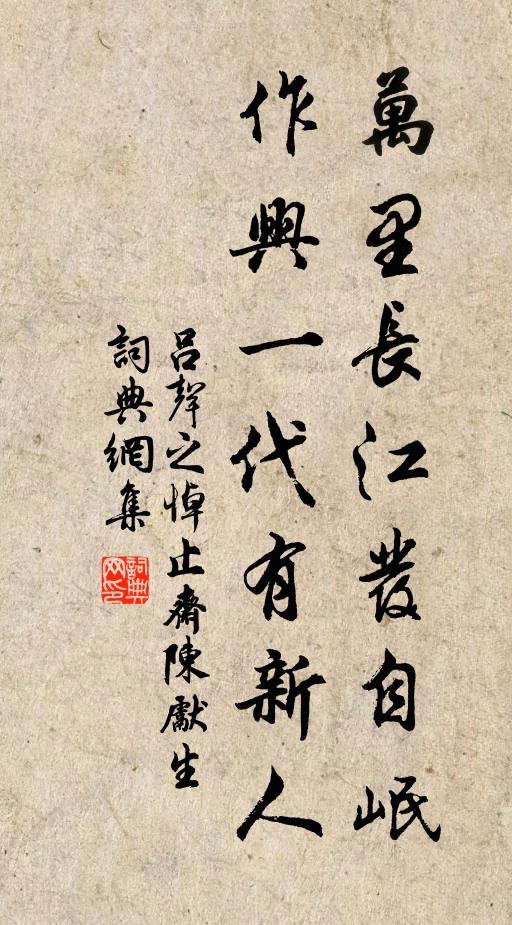 萬里長江發自岷
作興一代有新人
呂聲之悼止齋陳獻生
詞典網集
詞典網印